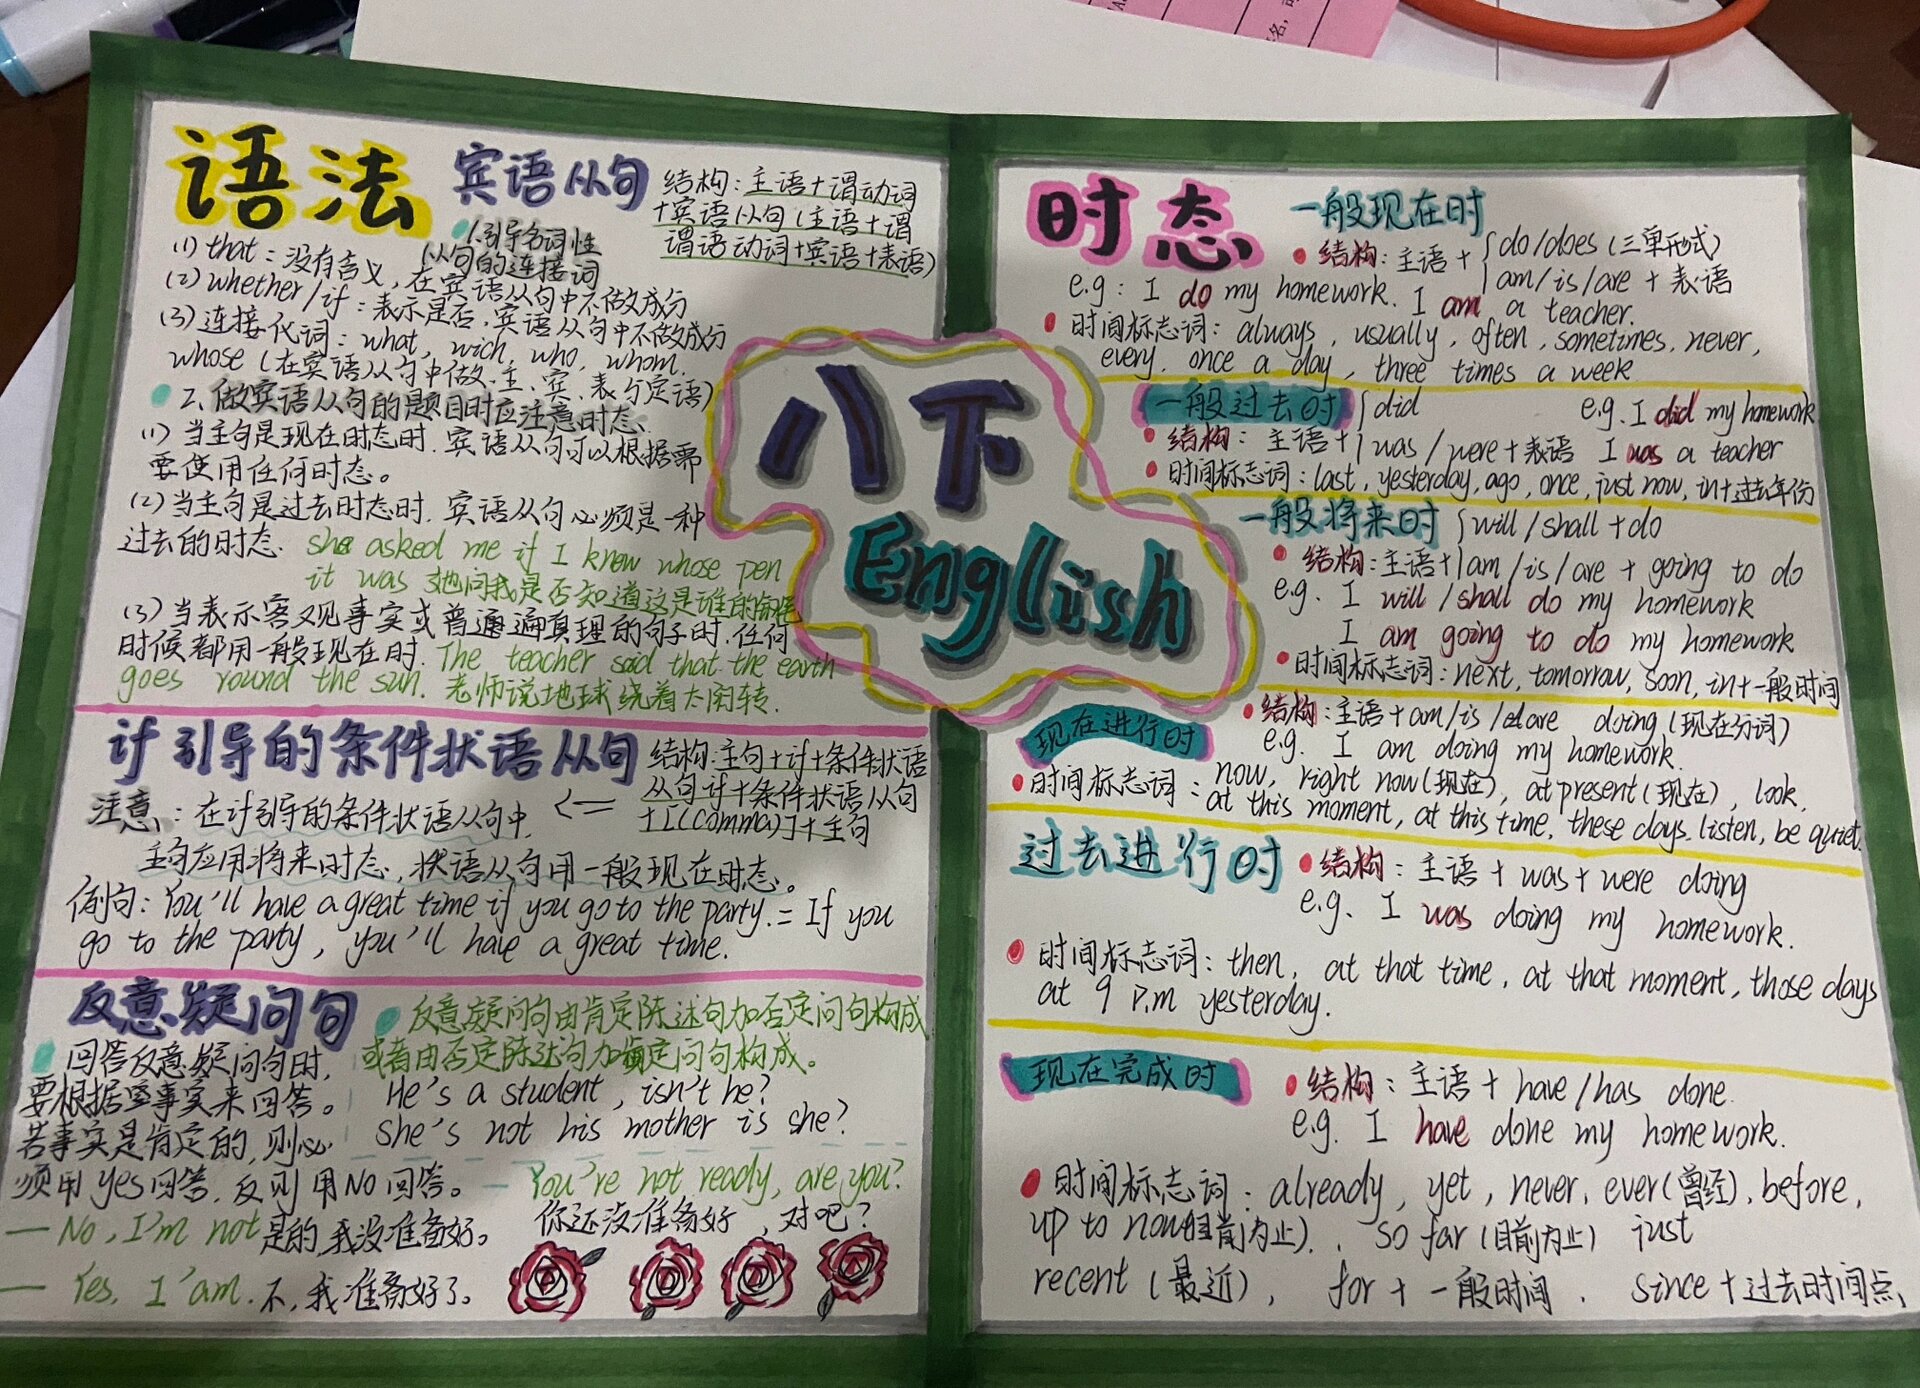 语法
宾语从句
结构：主语+谓动词
+宾语从句（主语+谓
谓语动词+宾语+表语）
1.引导名词性
从句的连接词
(1) that：没有含义，在宾语从句中不做成分
(2) whether/if：表示是否，宾语从句中不做成分
(3) 连接代词：what, wich, who, whom,
whose（在宾语从句中做主、宾、表与定语）
2、做宾语从句的题目时应注意时态
(1) 当主句是现在时态时，宾语从句可以根据需
要使用任何时态。
(2) 当主句是过去时态时，宾语从句必须是一种
过去的时态. she asked me if I knew whose pen
it was 她问我是否知道这是谁的
(3) 当表示客观事实或普遍真理的句子时，任何
时候都用一般现在时. The teacher said that the earth
goes round the sun. 老师说地球绕着太阳转.
计引导的条件状语从句
结构：主句+计+条件状语
从句计+条件状语从句
+[(comma)]+主句
注意：在计引导的条件状语从句中, <=
主句应用将来时态，状语从句用一般现在时态。
例句：You'll have a great time if you go to the party. = If you
go to the party, you'll have a great time.
反意疑问句
反意疑问句由肯定陈述句加否定问句构成
或者由否定陈述句加肯定问句构成。
He's a student, isn't he?
She's not his mother is she?
回答反意疑问句时，
要根据事实来回答。
若事实是肯定的，则必
须用yes回答，反则用No回答。
— You're not ready, are you?
你还没准备好，对吧？
— No, I'm not 是的,我没准备好。
— Yes, I'am. 不，我准备好了。
八下
English
时态
一般现在时
结构：主语+{do/does（三单形式）
am/is/are+表语
e.g: I do my homework. I am a teacher.
时间标志词：always, usually, often, sometimes, never,
every, once a day, three times a week
一般过去时
结构：主语+{did
was/were+表语
e.g. I did my homework
I was a teacher
时间标志词：last, yesterday, ago, once, just now, in+过去年份
一般将来时
结构：主语+{will/shall+do
am/is/are+going to do
e.g. I will/shall do my homework
I am going to do my homework
时间标志词：next, tomorrow, soon, in+一般时间
现在进行时
结构：主语+am/is/are doing（现在分词）
e.g. I am doing my homework.
时间标志词：now, right now(现在), at present(现在), look,
at this moment, at this time, these days. listen, be quiet.
过去进行时
结构：主语+was+were doing
e.g. I was doing my homework.
时间标志词：then, at that time, at that moment, those days
at 9 P.m yesterday.
现在完成时
结构：主语+have/has done.
e.g. I have done my homework.
时间标志词：already, yet, never, ever(曾经), before,
up to now(目前为止), so far(目前为止) just
recent（最近）, for+一般时间. since+过去时间点,